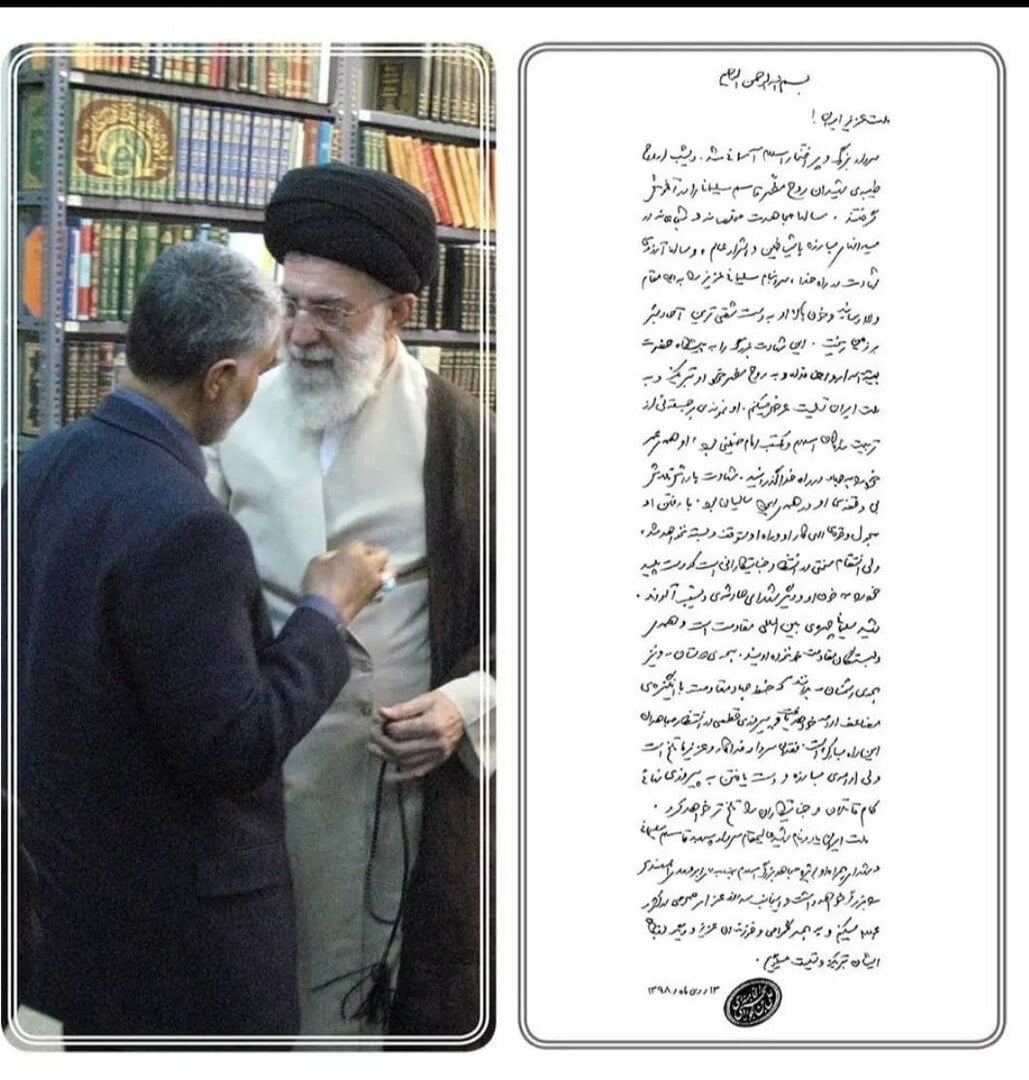 بسم الله الرحمن الرحیم
ملت عزیز ایران !
سردار بزرگ و پرافتخار اسلام آسمانی شد. دیشب ارواح
طیبه‌ی شهیدان روح مطهر قاسم سلیمانی را در آغوش
گرفتند. سالها مجاهدت مخلصانه و شجاعانه در
میدانهای مبارزه با شیاطین و اشرار عالم، و سالها آرزوی
شهادت در راه خدا، سرانجام سلیمانی عزیز را به این مقام
والا رسانید و خون پاک او به دست شقی‌ترین آحاد بشر
بر زمین ریخت. این شهادت بزرگ را به پیشگاه حضرت
بقیة‌الله ارواحنا فداه و به روح مطهر خود او تبریک و به
ملت ایران تسلیت عرض میکنم. او نمونه‌ی برجسته‌ئی از
تربیت‌شدگان اسلام و مکتب امام خمینی بود، او همه‌ی عمر
خود را به جهاد در راه خدا گذرانید. شهادت پاداش تلاش
بی‌وقفه‌ی او در همه‌ی این سالیان بود. با رفتن او
بحول و قوه‌ی الهی کار او و راه او متوقف و بسته نخواهد شد،
ولی انتقام سختی در انتظار جنایتکارانی است که دست پلید
خود را به خون او و دیگر شهدای حادثه‌ی دیشب آلودند.
شهید سلیمانی چهره‌ی بین‌المللی مقاومت است و همه‌ی
دلبستگان مقاومت خونخواه اویند. همه‌ی دوستان - و نیز
همه‌ی دشمنان - بدانند که خط جهاد مقاومت با انگیزه‌ی
مضاعف ادامه خواهد یافت و پیروزی قطعی در انتظار مجاهدان
این راه مبارک است. فقدان سردار فداکار و عزیز ما تلخ است
ولی ادامه‌ی مبارزه و دست یافتن به پیروزی نهائی
کام قاتلان و جنایتکاران را تلخ‌تر خواهد کرد.
ملت ایران یاد و نام شهید عالیمقام سردار سپهبد قاسم سلیمانی
و شهدای همراه او بویژه مجاهد بزرگ اسلام جناب آقای ابومهدی المهندس
را بزرگ خواهد داشت و اینجانب سه روز عزای عمومی در کشور
اعلام میکنم و به همسر گرامی و فرزندان عزیز و دیگر بستگان
ایشان تبریک و تسلیت میگویم.
۱۳ دی ماه ۱۳۹۸